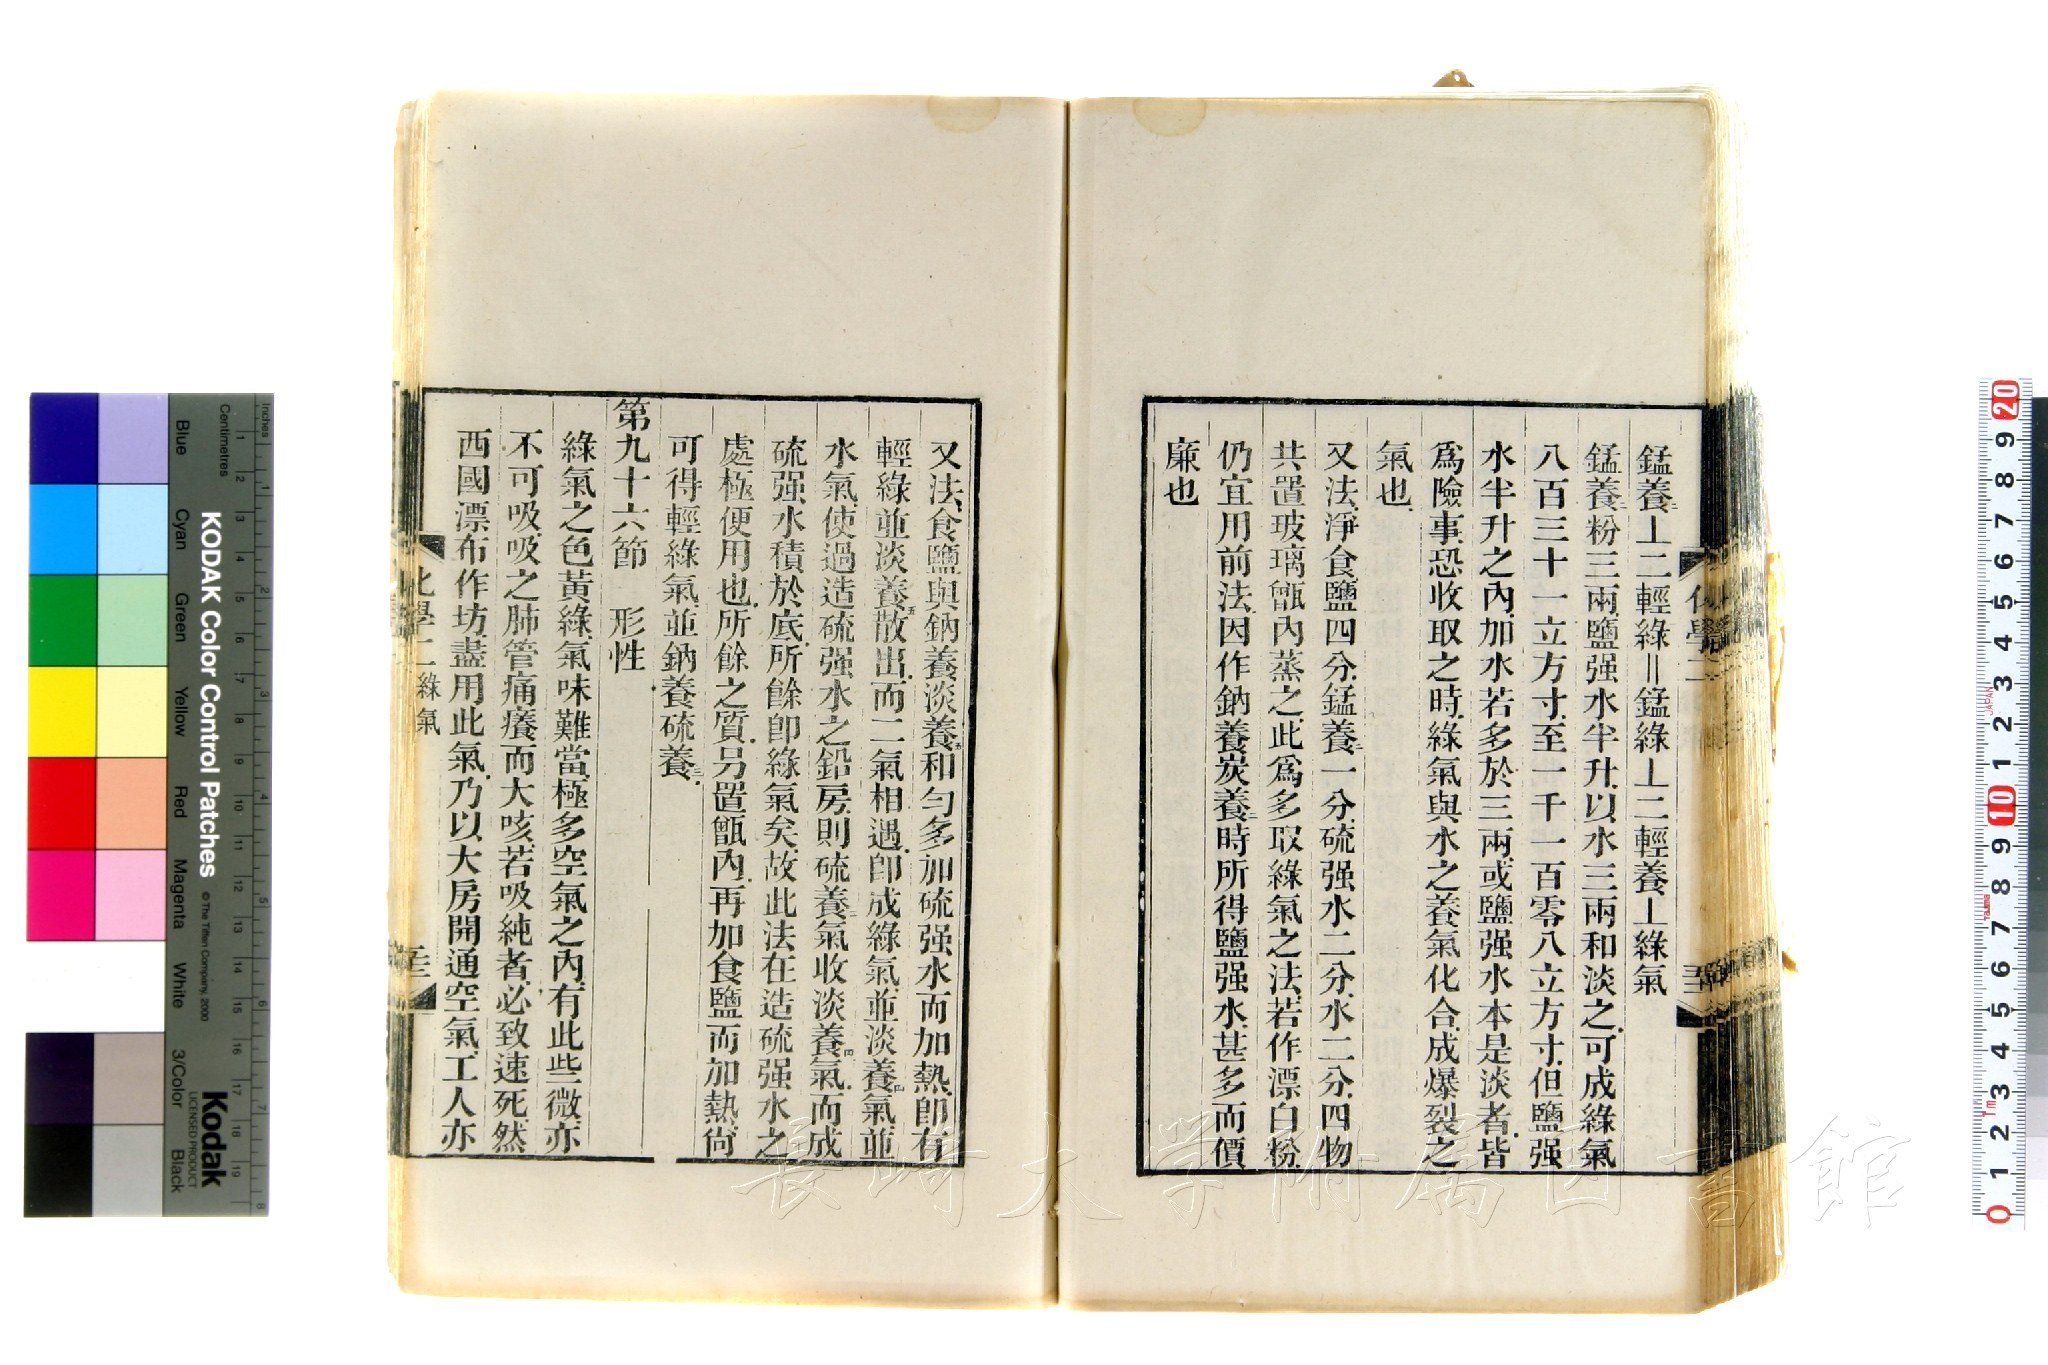 錳養二⊥二輕綠＝錳綠⊥二輕養⊥綠氣
錳養二粉三兩鹽强水半升以水三兩和淡之可成綠氣
八百三十一立方寸至一千一百零八立方寸但鹽强
水半升之內加水若多於三兩或鹽强水本是淡者皆
爲險事恐收取之時綠氣與水之養氣化合成爆裂之
氣也
又法淨食鹽四分錳養二一分硫强水二分水二分四物
共置玻璃甑內蒸之此爲多取綠氣之法若作漂白粉
仍宜用前法因作鈉養炭養二時所得鹽强水甚多而價
廉也
化學二
又法食鹽與鈉養淡養五和勻多加硫强水而加熱卽有
輕綠並淡養五散出而二氣相遇卽成綠氣並淡養四氣並
水氣使過造硫强水之鉛房則硫養二氣收淡養四氣而成
硫强水積於底所餘卽綠氣矣故此法在造硫强水之
處極便用也所餘之質另置甑內再加食鹽而加熱尙
可得輕綠氣並鈉養硫養三
第九十六節 形性
綠氣之色黃綠氣味難當極多空氣之內有此些微亦
不可吸吸之肺管痛癢而大咳若吸純者必致速死然
西國漂布作坊盡用此氣乃以大房開通空氣工人亦
化學二 綠氣
長崎大学附属図書館
KODAK Color Control Patches
© The Tiffen Company, 2000
Kodak
LICENSED PRODUCT
Inches
Centimetres
Blue
Cyan
Green
Yellow
Red
Magenta
White
3/Color
Black